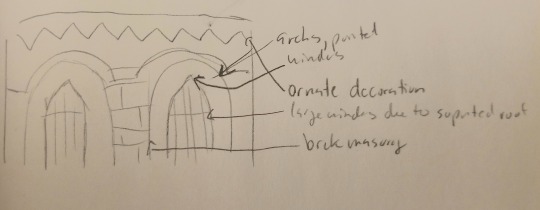 archs, pointed
windos
ornate decoration
large windos due to suported roof
brick masonry